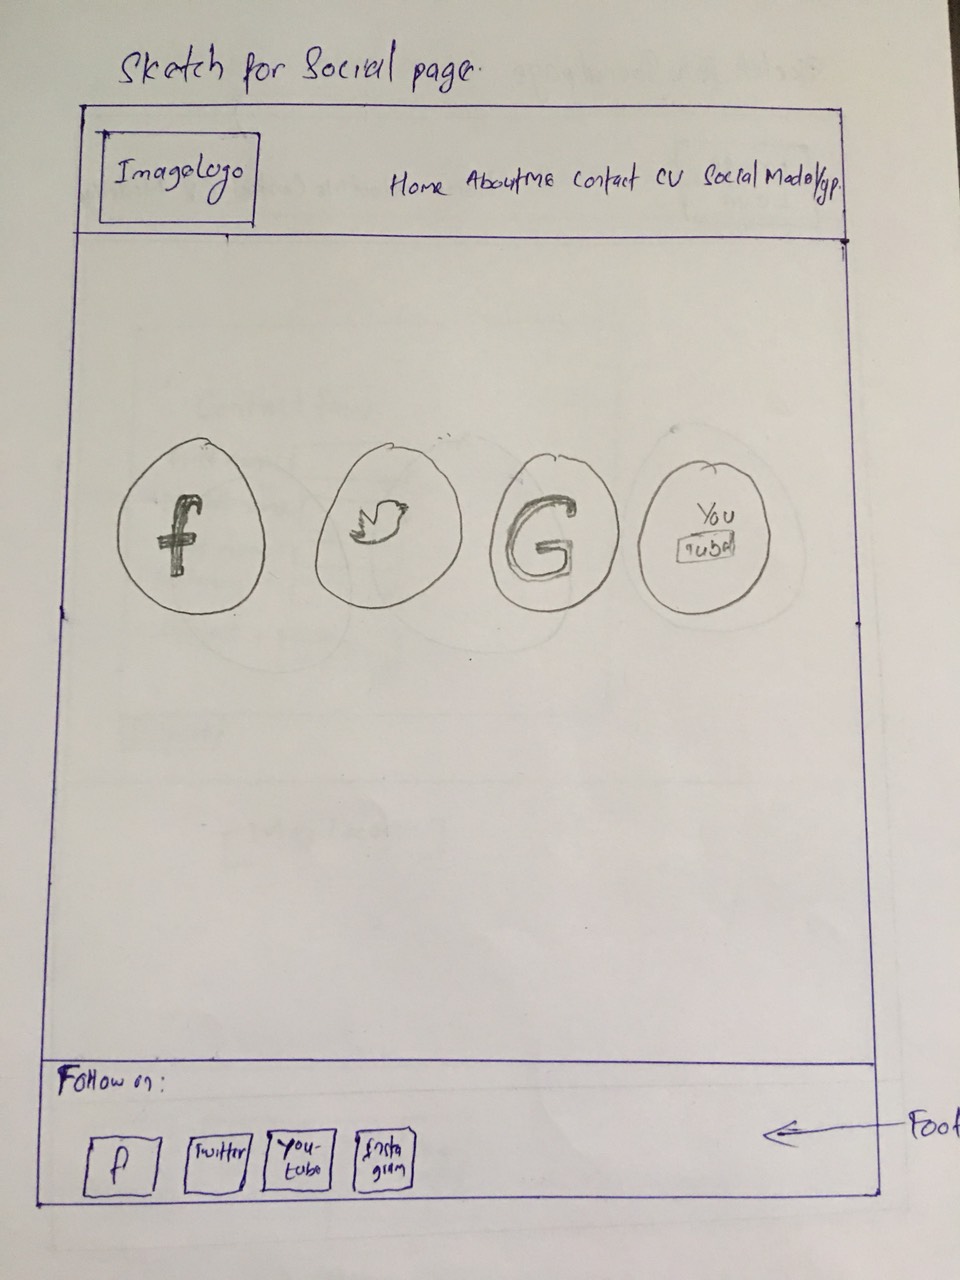 Sketch for Social page.
Image Logo
Home AboutMe Contact CV Social Media/gp.
f
G
You
Tube
Follow on:
f
Twitter
You-
tube
Insta
gram
Foot